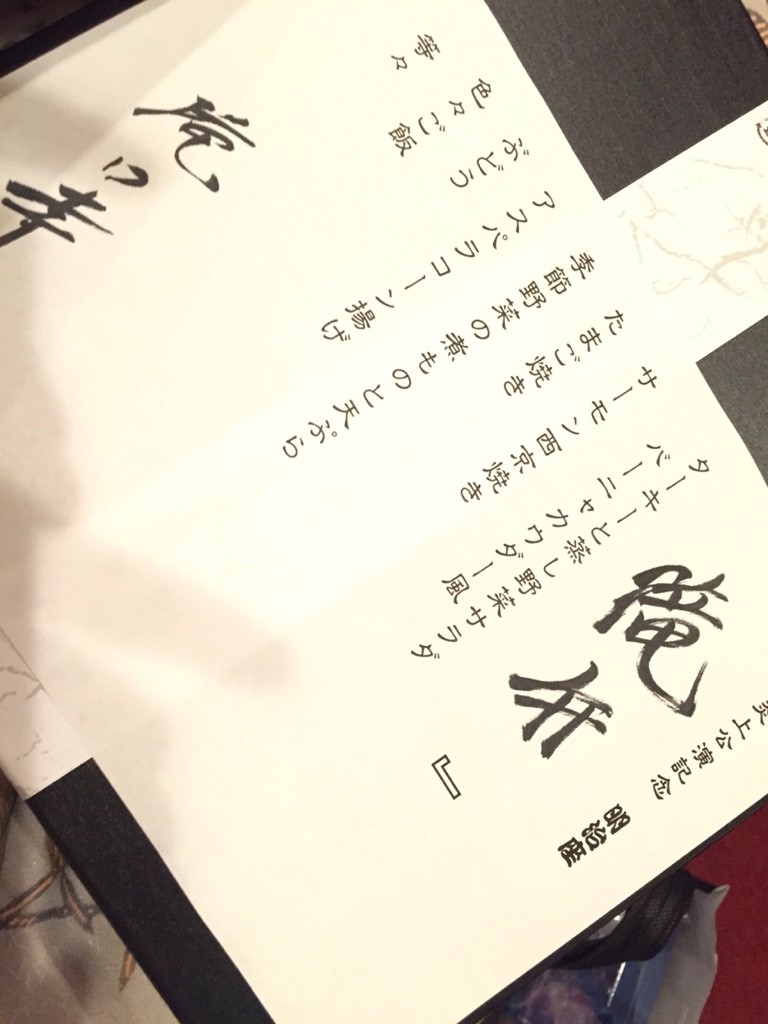 炎上公演記念 明治座
俺弁 』
ターキーと蒸し野菜サラダ
バーニャカウダー風
サーモン西京焼き
たまご焼き
季節野菜の煮ものと天ぷら
アスパラコーン揚げ
ぶどう
色々ご飯
等々